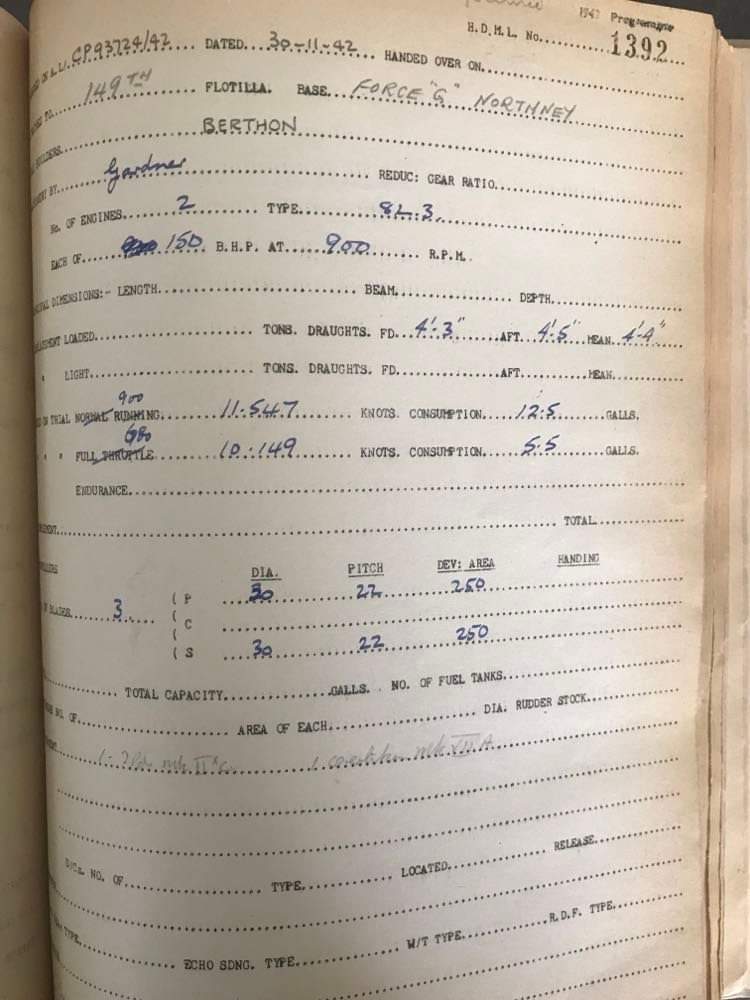 1942 Programme
H.D.M.L. No. 1392
CP93724/42 DATED 30-11-42 HANDED OVER ON
149TH FLOTILLA. BASE FORCE "G" NORTHNEY
BUILDERS BERTHON
BY Gardner REDUC: GEAR RATIO
No. OF ENGINES 2 TYPE 8L.3.
EACH OF 150 B.H.P. AT 900 R.P.M.
DIMENSIONS:- LENGTH BEAM DEPTH
LOADED TONS. DRAUGHTS. FD 4'-3" AFT 4'-5" MEAN 4'-4"
" LIGHT TONS. DRAUGHTS. FD AFT MEAN
900
ON TRIAL NORMAL RUNNING 11.547 KNOTS. CONSUMPTION 12.5 GALLS.
680
" " FULL THROTTLE 10.149 KNOTS. CONSUMPTION 5.5 GALLS.
ENDURANCE
TOTAL
DIA. PITCH DEV: AREA HANDING
( P 30 22 250
BLADES 3 (
( C
(
( S 30 22 250
TOTAL CAPACITY GALLS. NO. OF FUEL TANKS
NO. OF AREA OF EACH DIA. RUDDER STOCK
1 - mk II 1 mk VII A
NO. OF TYPE LOCATED RELEASE
TYPE ECHO SDNG. TYPE W/T TYPE R.D.F. TYPE